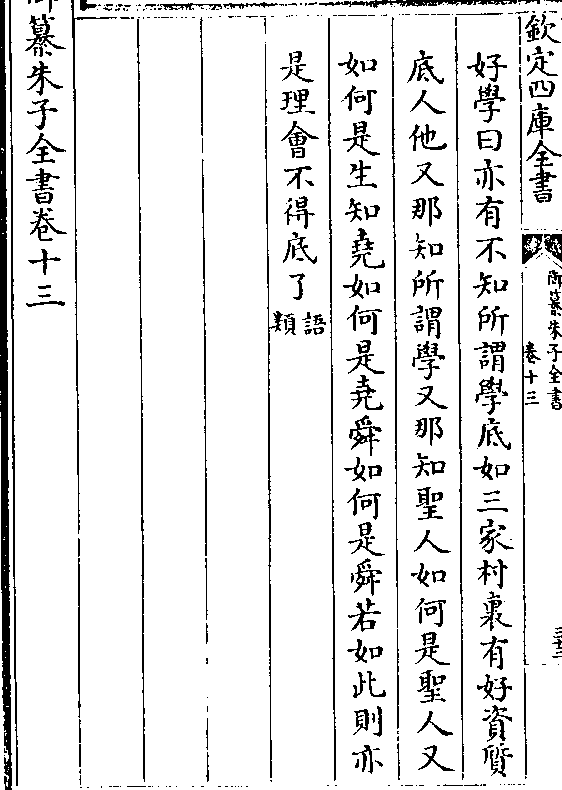 欽定四庫全書
御纂朱子全書
卷十三
三十三
好學曰亦有不知所謂學底如三家村裏有好資質
底人他又那知所謂學又那知聖人如何是聖人又
如何是生知堯如何是堯舜如何是舜若如此則亦
是理會不得底了語類
御纂朱子全書卷十三